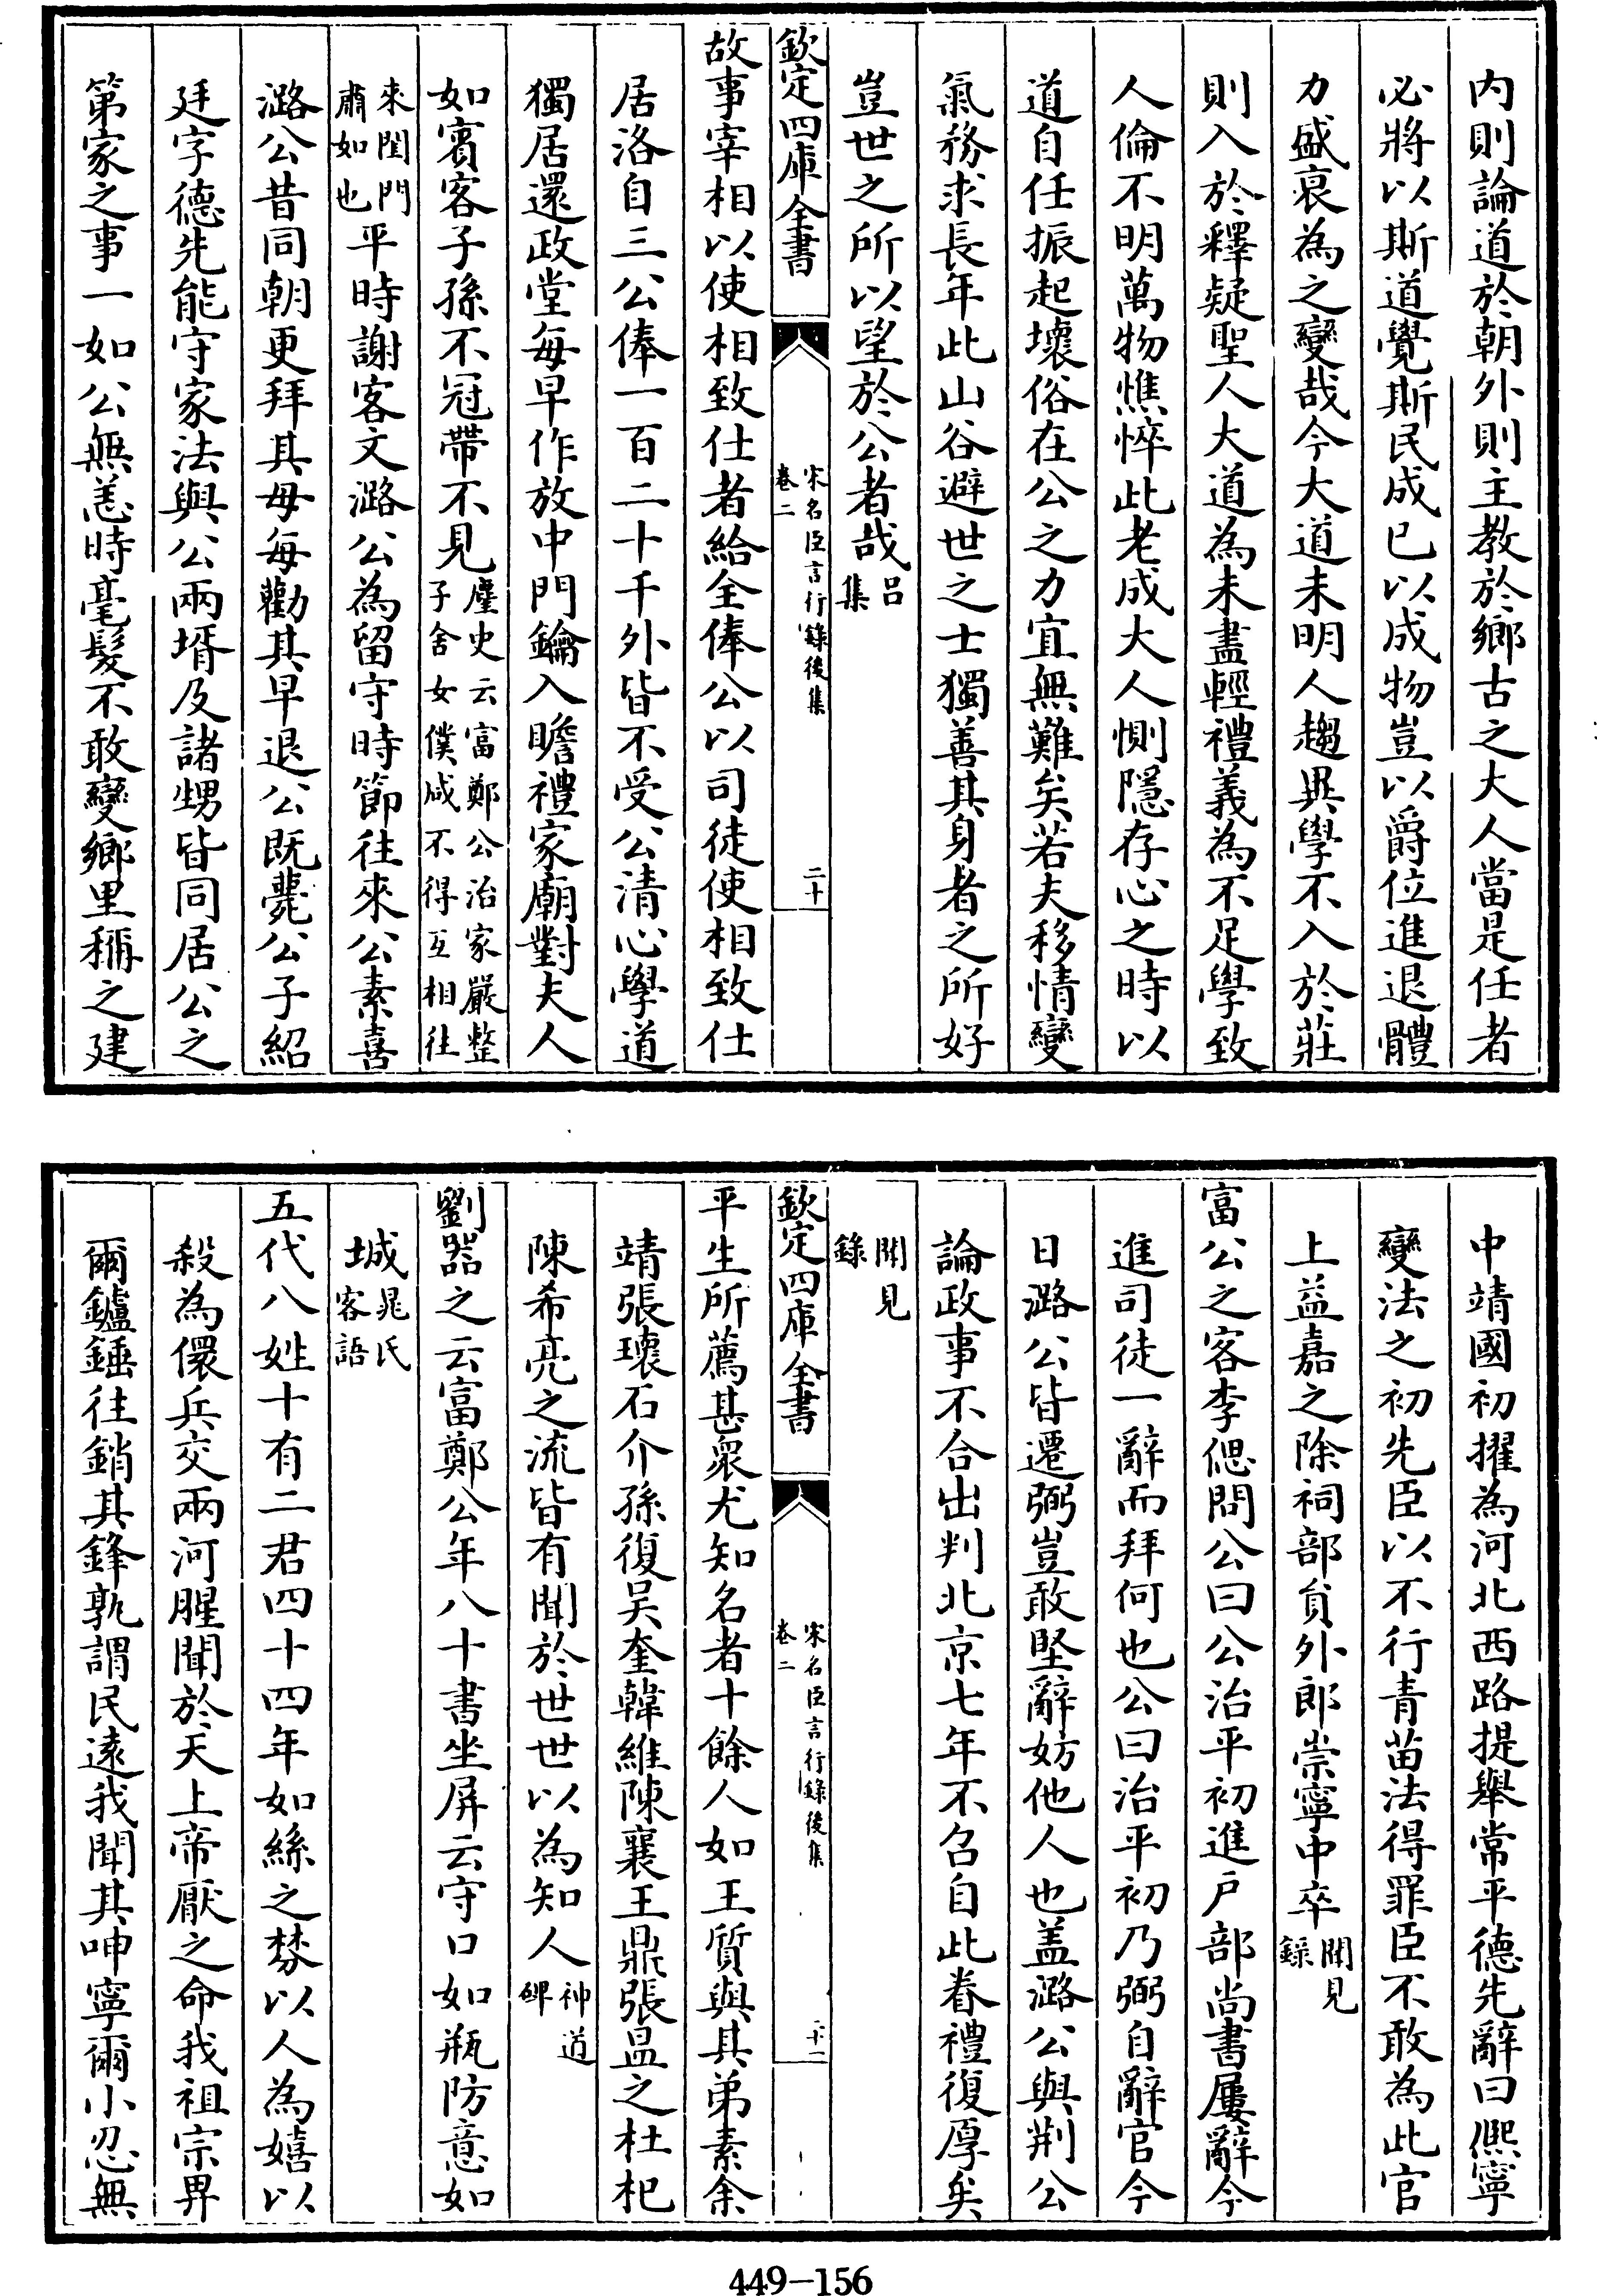 内則論道於朝外則主教於鄉古之大人當是任者
必將以斯道覺斯民成已以成物豈以爵位進退體
力盛衰為之變哉今大道未明人趨異學不入於莊
則入於釋疑聖人大道為未盡輕禮義為不足學致
人倫不明萬物憔悴此老成大人惻隱存心之時以
道自任振起壞俗在公之力宜無難矣若夫移情變
氣務求長年此山谷避世之士獨善其身者之所好
豈世之所以望於公者哉呂集
欽定四庫全書 宋名臣言行錄後集 卷二 二十
故事宰相以使相致仕者給全俸公以司徒使相致仕
居洛自三公俸一百二十千外皆不受公清心學道
獨居還政堂每早作放中門鑰入瞻禮家廟對夫人
如賓客子孫不冠帶不見塵史云富鄭公治家嚴整子舍女僕咸不得互相往
來閨門肅如也平時謝客文潞公為留守時節往來公素喜
潞公昔同朝更拜其母每勸其早退公既薨公子紹
廷字德先能守家法與公兩壻及諸甥皆同居公之
第家之事一如公無恙時毫髮不敢變鄉里稱之建
中靖國初擢為河北西路提舉常平德先辭曰熈寧
變法之初先臣以不行青苗法得罪臣不敢為此官
上益嘉之除祠部貟外郎崇寧中卒聞見錄
富公之客李偲問公曰公治平初進戶部尚書屢辭今
進司徒一辭而拜何也公曰治平初乃弼自辭官今
日潞公皆遷弼豈敢堅辭妨他人也盖潞公與荆公
論政事不合出判北京七年不召自此眷禮復厚矣
聞見錄
欽定四庫全書 宋名臣言行錄後集 卷二 二十一
平生所薦甚衆尤知名者十餘人如王質與其弟素余
靖張瓌石介孫復吳奎韓維陳襄王鼎張昷之杜杞
陳希亮之流皆有聞於世世以為知人神道碑
劉器之云富鄭公年八十書坐屏云守口如瓶防意如
城晁氏客語
五代八姓十有二君四十四年如絲之棼以人為嬉以
殺為儇兵交兩河腥聞於天上帝厭之命我祖宗畀
爾鑪錘往銷其鋒孰謂民遠我聞其呻寧爾小忍無
449-156